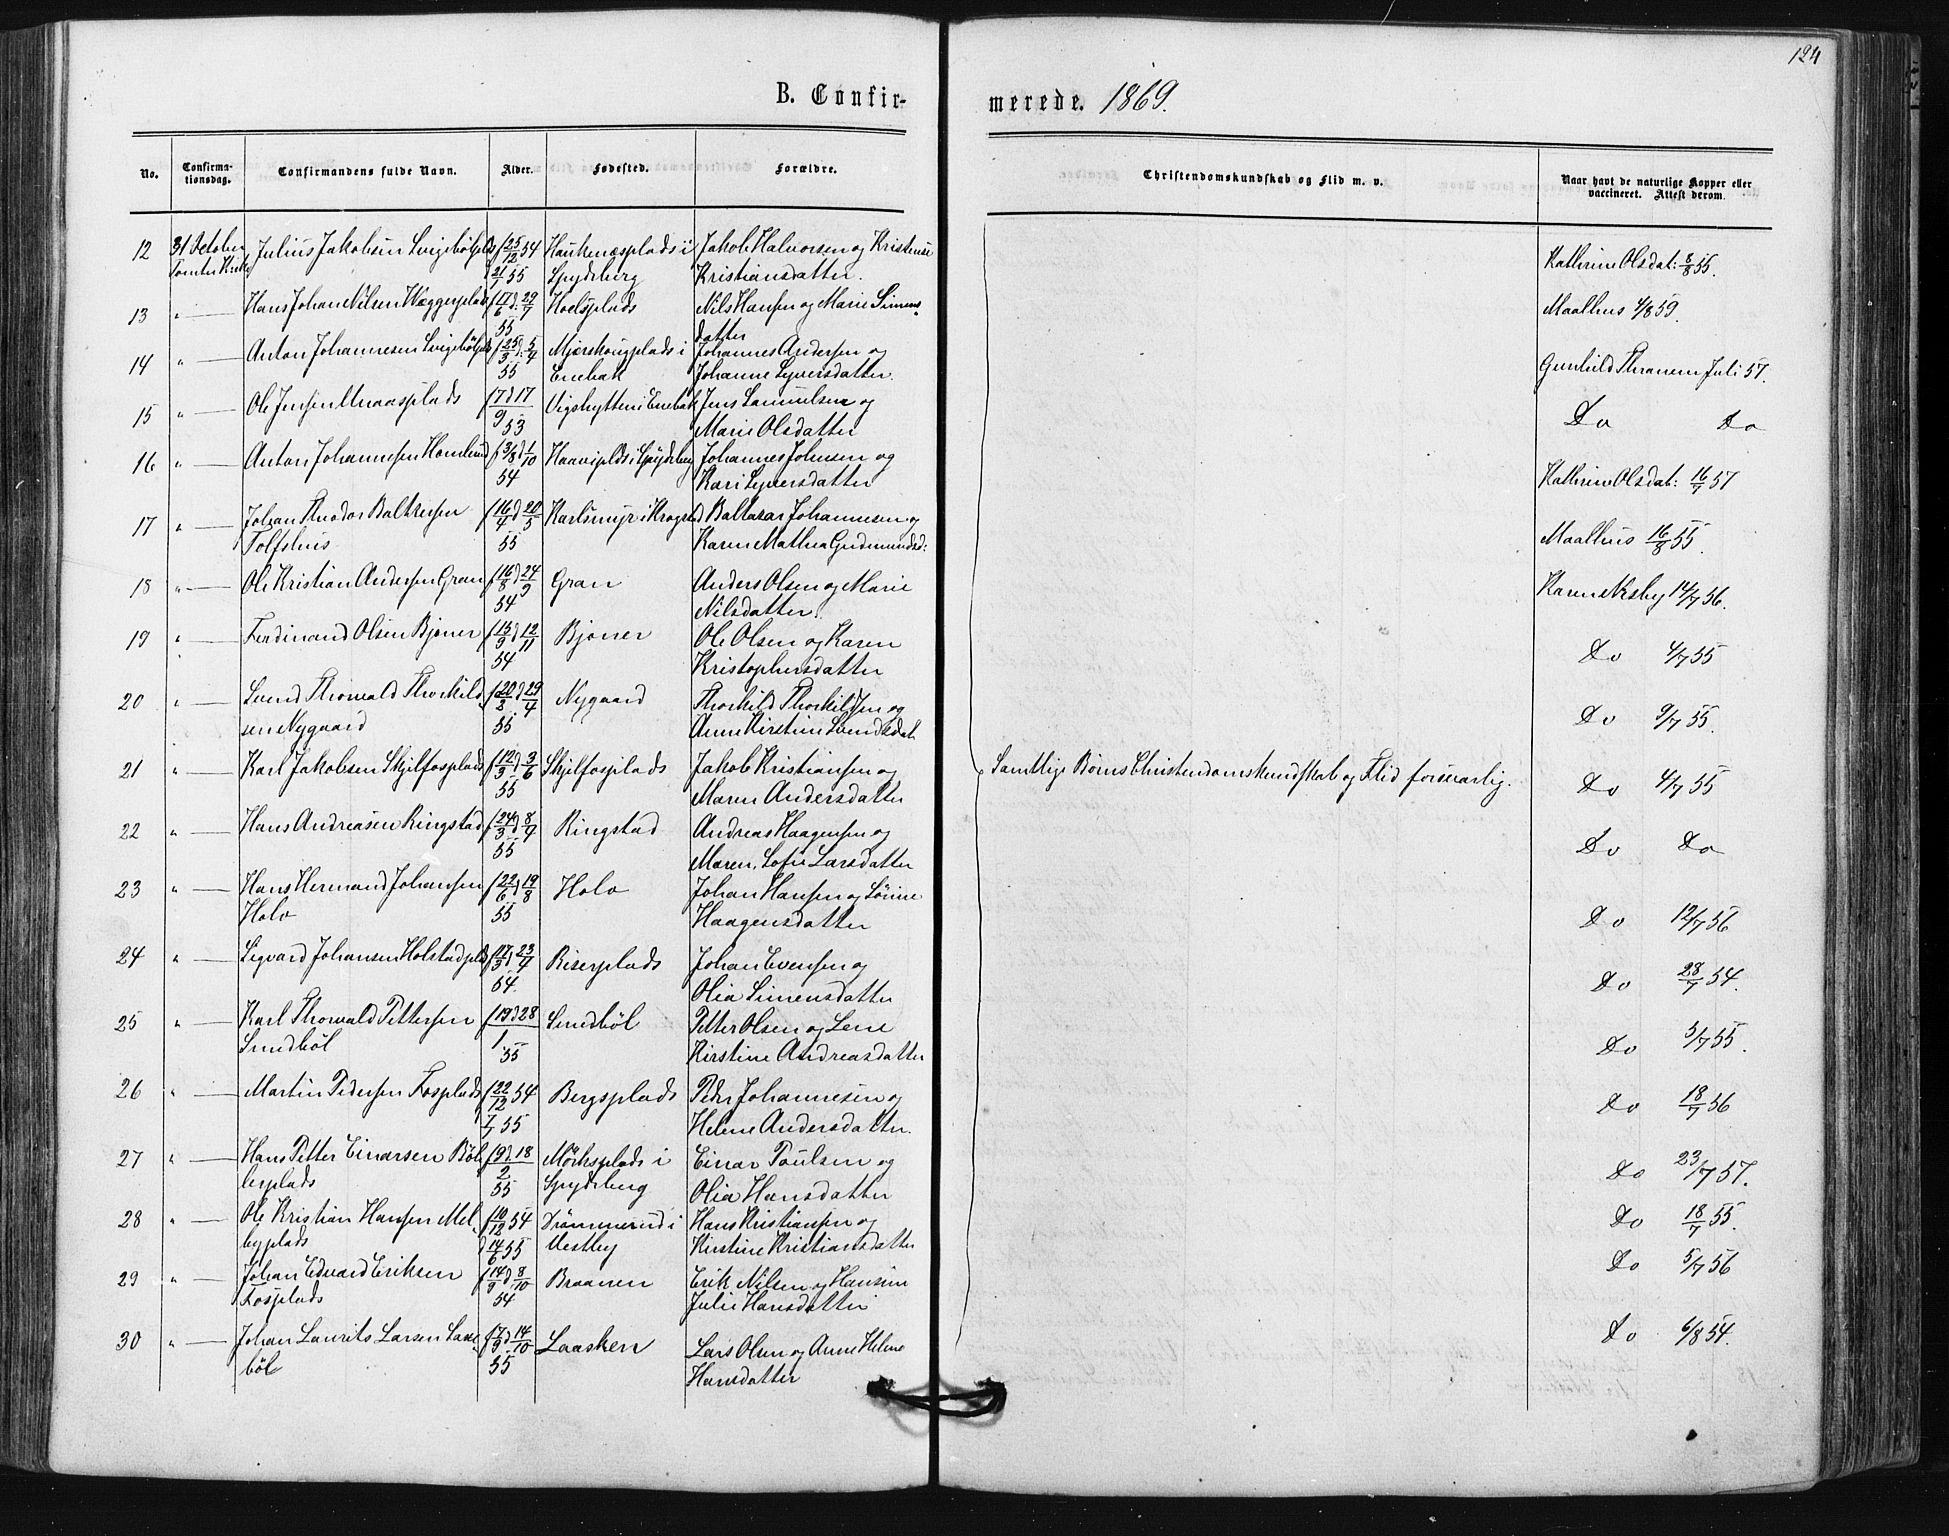 124
B. Confir-
merede. 1869.
No.
Confirma-
tionsdag.
Confirmandens fulde Navn.
Alder.
Fødested.
Forældre.
Christendomskundskab og Flid m. v.
Naar havt de naturlige Kopper eller
vaccineret. Attest derom.
12 31 October Julius Jakobsen f 25/12 54 Haukenæsplads i Jakob Halvorsen og Kristense Kathrine Olsdat: 8/8 55.
Tomter Kirke 21/1 55 Spydeberg Kristiansdatter.
13 " Hans Johan Nilsen f 17/6 d. 29/7 Hoelsplads Nils Hansen og Marie Simens Maalhus 4/8 59.
55 datter
14 " Anton Johannesen f 25/3 d. 5/4 Mjærskougplads i Johannes Andersen og Gunhild Thranem Juli 57.
55 Enebak Johanne Syversdatter.
15 " Ole Jensen f 7 d 17 Vigshytten i Enebak Jens Samuelsen og Do Do
9 53 Marie Olsdatter
16 " Anton Johannesen f 3/8 d 1/10 Haaviplds i Spydeberg Johannes Johnsen og Kathrine Olsdat: 16/7 57
54 Kari Syversdatter
17 " Johan Theodor Baltzersen f 16/4 d 20/5 Karlsmyr i Krogstad Baltazar Johannesen og Maalhus 16/8 55.
Tolfshus 55 Karen Mathea Gudmundsd:
18 " Ole Kristian Andersen Gran f 16/8 d 24/9 Gran Anders Olsen og Marie Karen 14/7 56.
54 Nilsdatter.
19 " Ferdinand Olsen Bjoner f 15/9 d 12/11 Bjoner Ole Olsen og Karen Do 4/7 55
54 Kristophersdatter
20 " Svend Thorvald Thorkild- f 20/3 d 29/4 Nygaard Thorkild Thorkildsen og Do 9/7 55.
sen Nygaard 55 Anne Kirstine Svendsdat
21 " Karl Jakobsen Skjelfosplads f 12/3 d. 3/6 Skjelfosplads Jakob Kristiansen og Samtlige Børns Christendomskundskab og Flid forsvarlig. Do 4/7 55
55 Maren Andersdatter
22 " Hans Andreasen Ringstad f 24/3 d 8/4 Ringstad Andreas Haagensen og Do Do
55 Maren Sofie Larsdatter
23 " Hans Hermand Johansen f 22/6 d 19/8 Holo Johan Hansen og Sørine Do 12/7 56
Holo 55 Haagensdatter
24 " Sigvard Johansen Holstadplds f 17/3 d 23/4 Riserplads Johan Evensen og Do 28/7 54.
54. Olia Simensdatter
25 " Karl Thorvald Pettersen f 19 d 28 Smedbøl Petter Olsen og Lene Do 5/7 55.
Smedbøl 1 55 Kirstine Andreasdatter
26 " Martin Pedersen Fosplads f 22/12 54 Bergsplads Peder Johannesen og Do 18/7 56
7/1 55 Helene Andersdatter.
27 " Hans Petter Einarsen Bøl f 9 d. 18 Mørksplads i Einar Poulsen og Do 23/7 57.
lerplads 2 55 Spydeberg Olia Hansdatter
28 " Ole Kristian Hansen Mel f 10/12 54 Drømmerud i Hans Kristiansen og Do 18/7 55.
byplads d 14/6 55 Vestby Kirstine Kristiansdatter
29 " Johan Edvard Eriksen f 14/9 d. 8/10 Braanen Erik Nilsen og Hansine Do 5/7 56
Fosplads 54 Julie Hansdatter
30 " Johan Laurits Larsen f 17/9 d. 14/10 Laasken Lars Olsen og Anne Helene Do 6/8 54.
bøl 55 Hansdatter